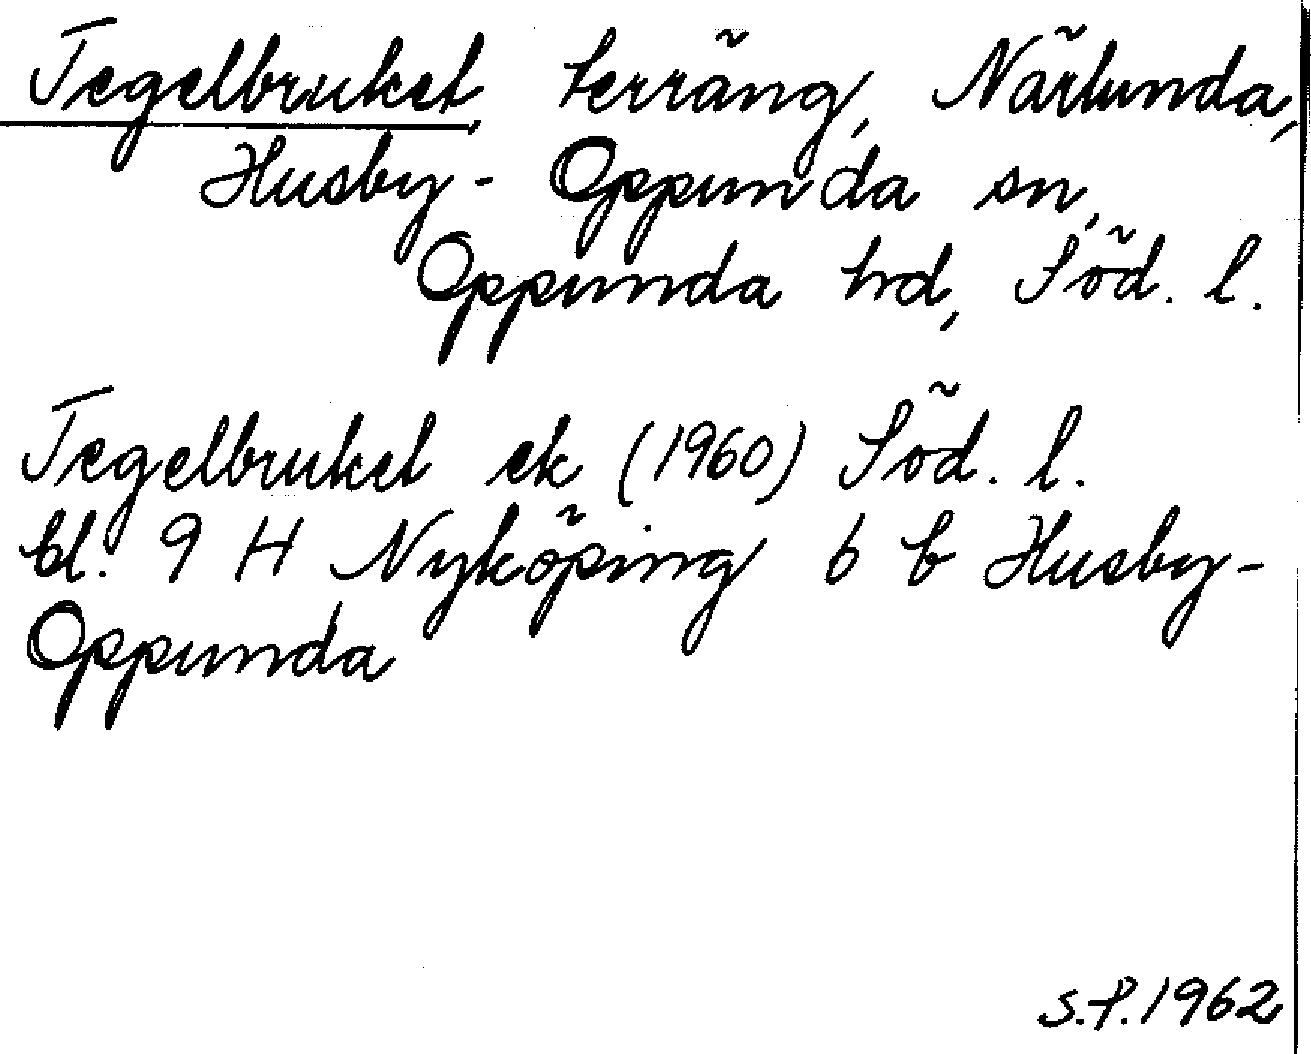 Tegelbruket, terräng, Närlunda,
Husby-Oppunda sn,
Oppunda hd, Söd. l.
Tegelbruket ek (1960) Söd. l.
bl. 9 H Nyköping 6 b Husby-
Oppunda
S.P. 1962